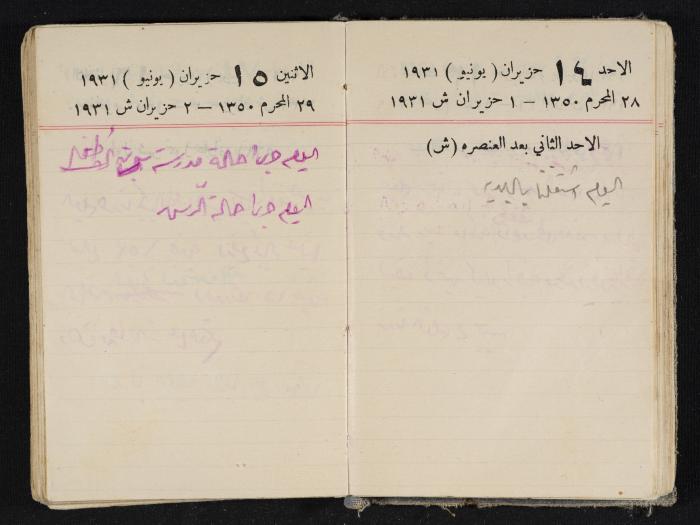 الاحد ١٤ حزيران ( يونيو ) ١٩٣١
٢٨ المحرم ١٣٥٠ – ١ حزيران ش ١٩٣١
الاحد الثاني بعد العنصره (ش)
اليوم اشتغلنا بالبلديه
الاثنين ١٥ حزيران ( يونيو ) ١٩٣١
٢٩ المحرم ١٣٥٠ – ٢ حزيران ش ١٩٣١
اليوم جرا حالة مدرسة
اليوم جرا حالة